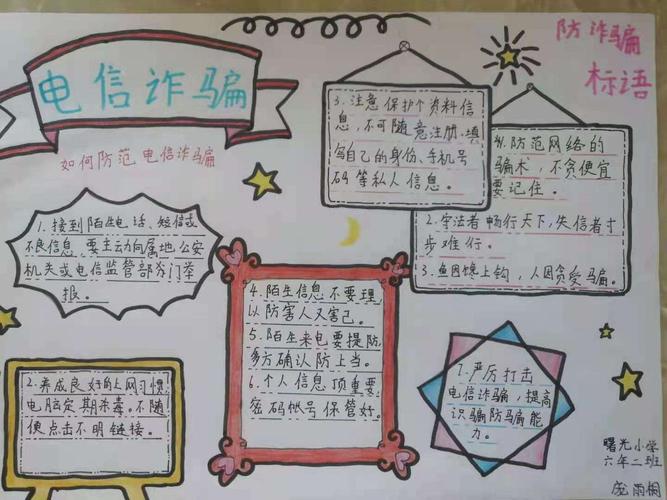 电信诈骗
如何防范电信诈骗
1.接到陌生电话、短信或
不良信息,要主动向属地公安
机关或电信监管部务门举
报。
2.养成良好的上网习惯,
电脑定期杀毒。不随
便点击不明链接。
3.注意保护个资料信
息,不可随意注册、填
写自己的身份、手机号
码等私人信息。
4.陌生信息不要理,
以防害人又害己。
5.陌生来电要提防,
多方确认防上当。
6.个人信息顶重要,
密码帐号保管好。
7.严厉打击
电信诈骗,提高
识骗防骗能
力。
防诈骗
标语
防范网络的
骗术,不贪便宜
要记住。
2.守法者畅行天下,失信者寸
步难行。
3.鱼因馋上钩,人因贪受骗。
曙光小学
六年二班
庞雨桐